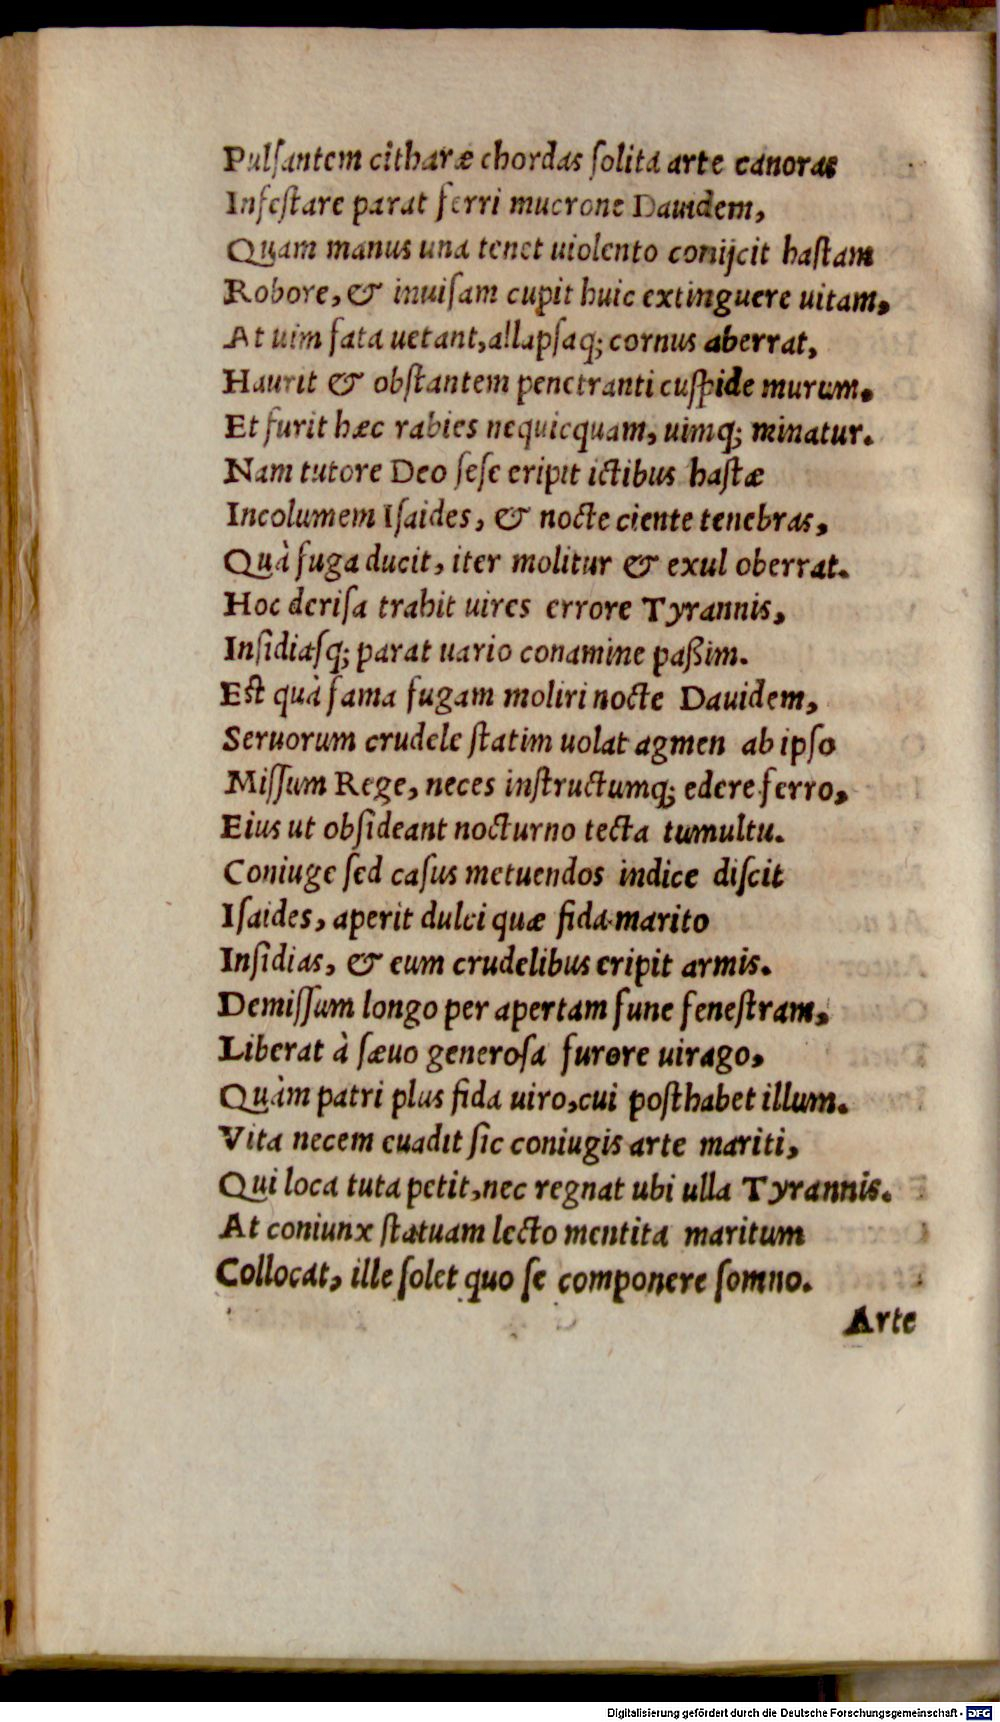 Pulſantem citharæ chordas ſolita arte canoras
Infeſtare parat ferri mucrone Dauidem,
Quam manus una tenet uiolento conijcit haſtam
Robore, & inuiſam cupit huic extinguere uitam,
At uim fata uetant, allapſaq; cornus aberrat,
Haurit & obſtantem penetranti cuſpide murum.
Et furit hæc rabies nequicquam, uimq; minatur.
Nam tutore Deo ſeſe eripit ictibus haſtæ
Incolumem Iſaides, & nocte ciente tenebras,
Quà fuga ducit, iter molitur & exul oberrat.
Hoc deriſa trahit uires errore Tyrannis,
Inſidiasq; parat uario conamine paßim.
Eſt quà fama fugam moliri nocte Dauidem,
Seruorum crudele ſtatim uolat agmen ab ipſo
Miſſum Rege, neces inſtructumq; edere ferro,
Eius ut obſideant nocturno tecta tumultu.
Coniuge ſed caſus metuendos indice diſcit
Iſaides, aperit dulci quæ fida marito
Inſidias, & eum crudelibus eripit armis.
Demiſſum longo per apertam fune feneſtram,
Liberat à ſæuo generoſa furore uirago,
Quàm patri plus fida uiro, cui poſthabet illum.
Vita necem euadit ſic coniugis arte mariti,
Qui loca tuta petit, nec regnat ubi ulla Tyrannis.
At coniunx ſtatuam lecto mentita maritum
Collocat, ille ſolet quo ſe componere ſomno.
Arte
Digitalisierung gefördert durch die Deutsche Forschungsgemeinschaft - DFG